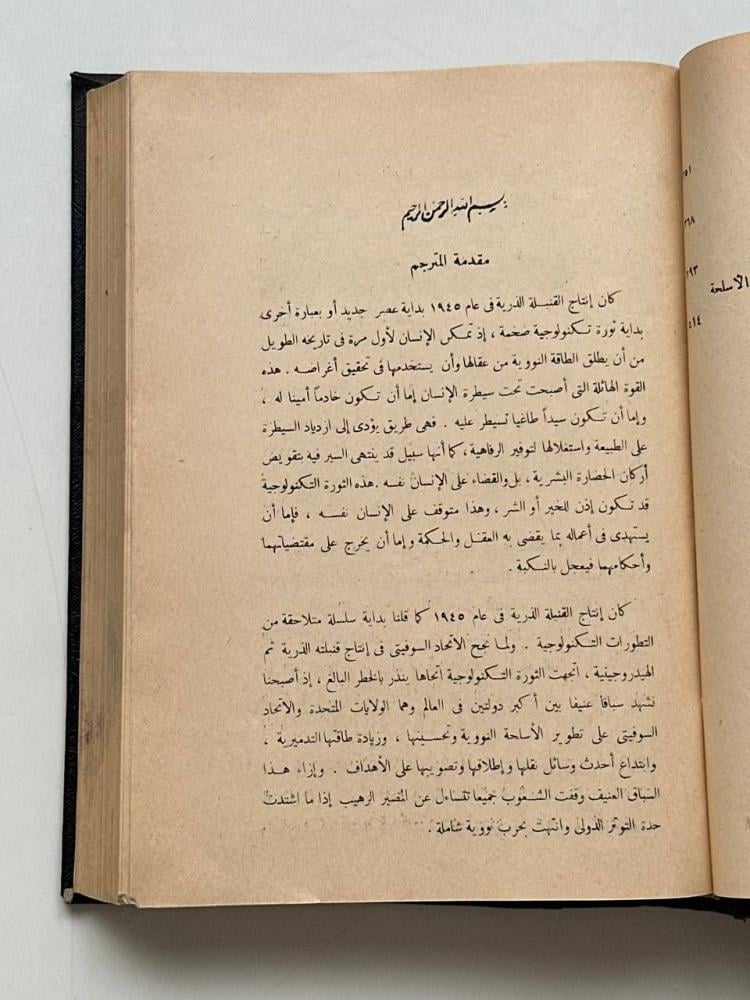 بسم الله الرحمن الرحيم
مقدمة المترجم
كان إنتاج القنبلة الذرية فى عام ١٩٤٥ بداية عصر جديد أو بعبارة أخرى
بداية ثورة تكنولوجية ضخمة ، إذ تمكن الإنسان لأول مرة فى تاريخه الطويل
من أن يطلق الطاقة النووية من عقالها وأن يستخدمها فى تحقيق أغراضه . هذه
القوة الهائلة التى أصبحت تحت سيطرة الإنسان إما أن تكون خادماً أمينا له ،
وإما أن تكون سيداً طاغيا تسيطر عليه . فهى طريق يؤدى إلى ازدياد السيطرة
على الطبيعة واستغلالها لتوفير الرفاهية ، كما أنها سبيل قد ينتهى السير فيه بتقويض
أركان الحضارة البشرية ، بل والقضاء على الإنسان نفسه . هذه الثورة التكنولوجية
قد تكون إذن للخير أو الشر ، وهذا متوقف على الإنسان نفسه ، فإما أن
يستهدى فى أعماله بما يقضى به العقل والحكمة وإما أن يخرج على مقتضياتهما
وأحكامهما فيعجل بالنكبة .
كان إنتاج القنبلة الذرية فى عام ١٩٤٥ كما قلنا بداية سلسلة متلاحقة من
التطورات التكنولوجية . ولما نجح الاتحاد السوفيتى فى إنتاج قنبلته الذرية ثم
الهيدروجينية ، اتجهت الثورة التكنولوجية اتجاها ينذر بالخطر البالغ ، إذ أصبحنا
نشهد سباقاً عنيفا بين أكبر دولتين فى العالم وهما الولايات المتحدة والاتحاد
السوفيتى على تطوير الأسلحة النووية وتحسينها ، وزيادة طاقتها التدميرية ،
وابتداع أحدث وسائل نقلها وإطلاقها وتصويبها على الأهداف . وإزاء هذا
السباق العنيف وقفت الشعوب جميعا تتساءل عن المصير الرهيب إذا ما اشتدت
حدة التوتر الدولى وانتهت بحرب نووية شاملة .
٣٩٣
الأسلحة
٤١٤